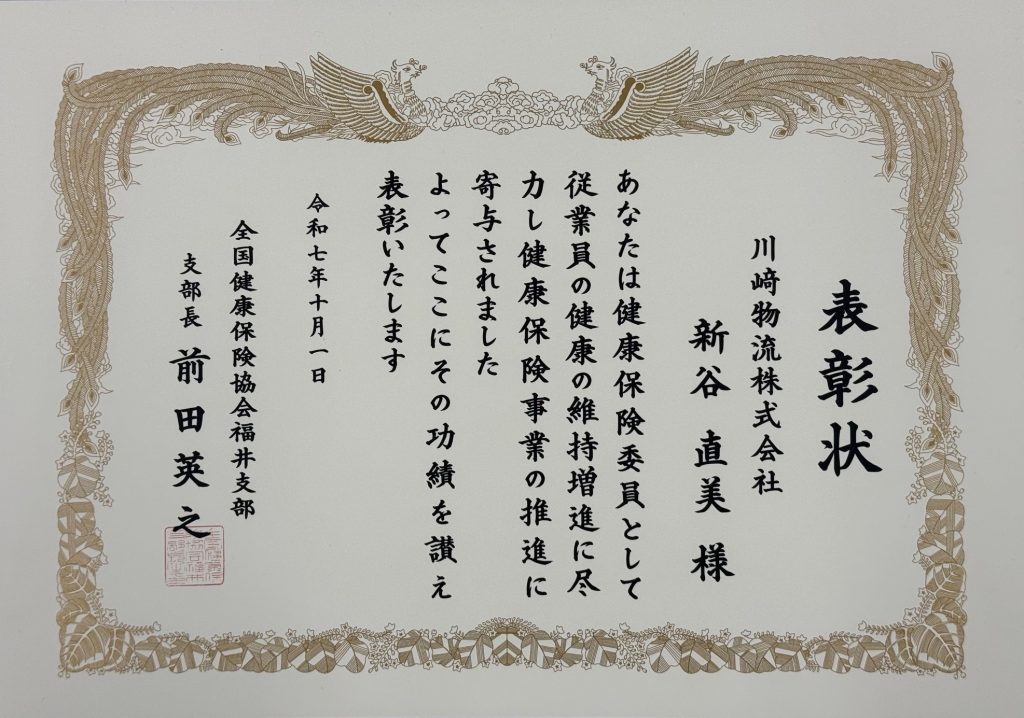 表彰状
川﨑物流株式会社
新谷 直美 様
あなたは健康保険委員として
従業員の健康の維持増進に尽
力し健康保険事業の推進に
寄与されました
よってここにその功績を讃え
表彰いたします
令和七年十月一日
全国健康保険協会福井支部
支部長 前田英之